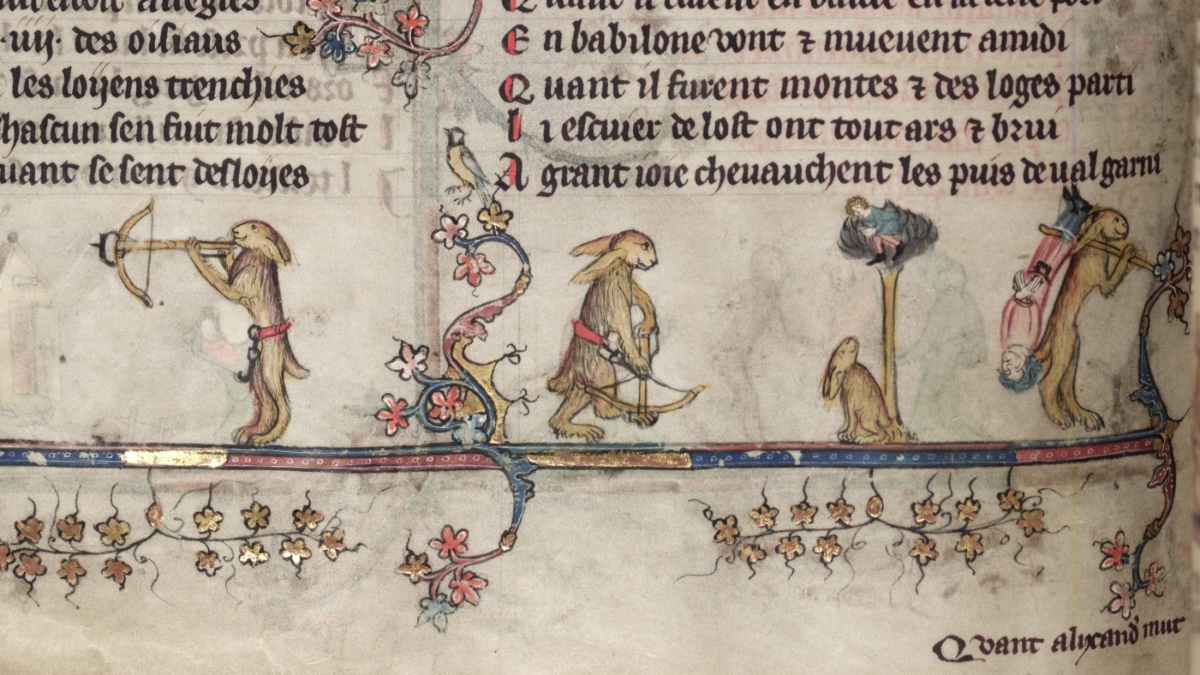 ·iiij· des oisiaus
les loijens trenchies
chascun sen fuit molt tost
uant se sent desloijes
En babilone vont ⁊ mueuent amidi
Quant il furent montes ⁊ des loges parti
li escuier de lost ont tout ars ⁊ brui
A grant ioie cheuauchent les puis de ual garni
Quant alixand' mut